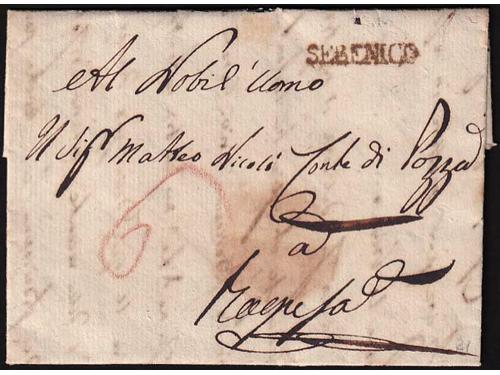 SEBENICO
Al Nobil' Uomo
Il Sigr Matteo Nicolò Conte di Pozza
6
a
Ragusa